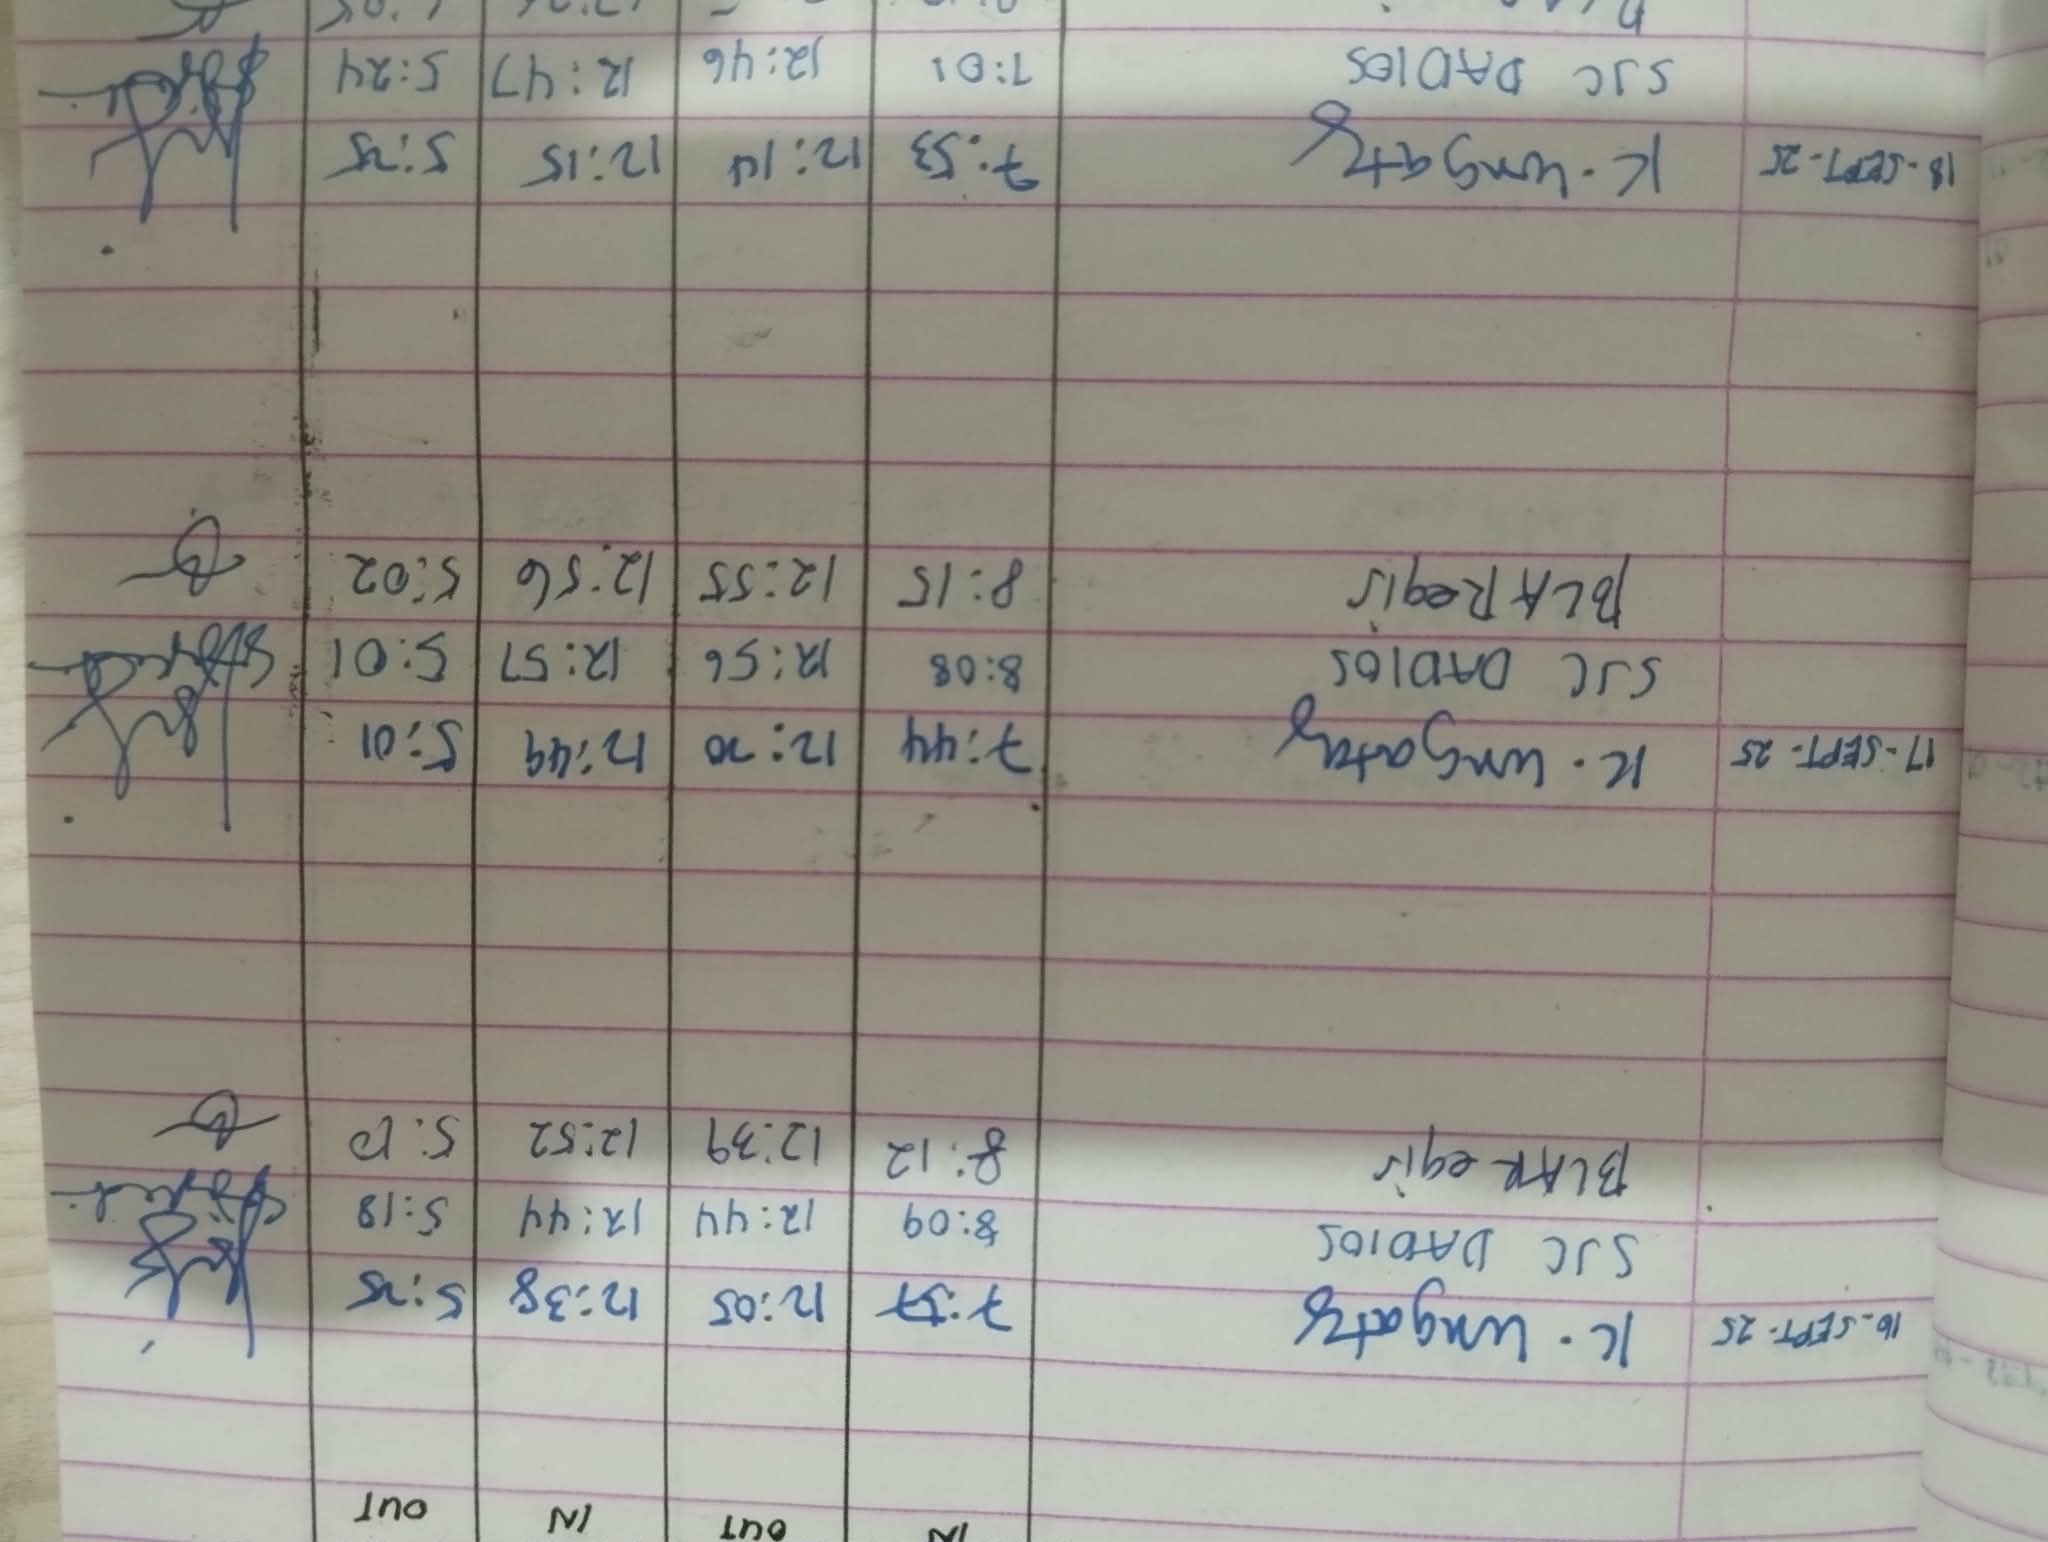 IN OUT IN OUT
16-SEPT-25 K. Ungatz 7:57 12:05 12:38 5:25
SJC DADIOS 8:09 12:44 12:44 5:18
BLAR egir 8:12 12:39 12:52
17-SEPT-25 K. Ungatz 7:44 12:20 12:49 5:01
SJC DADIOS 8:08 12:56 12:57 5:01
BLA Regir 8:15 12:55 12:56 5:02
18-SEPT-25 K. Ungatz 7:53 12:14 12:15 5:25
SJC DADIOS 7:01 12:46 12:47 5:24